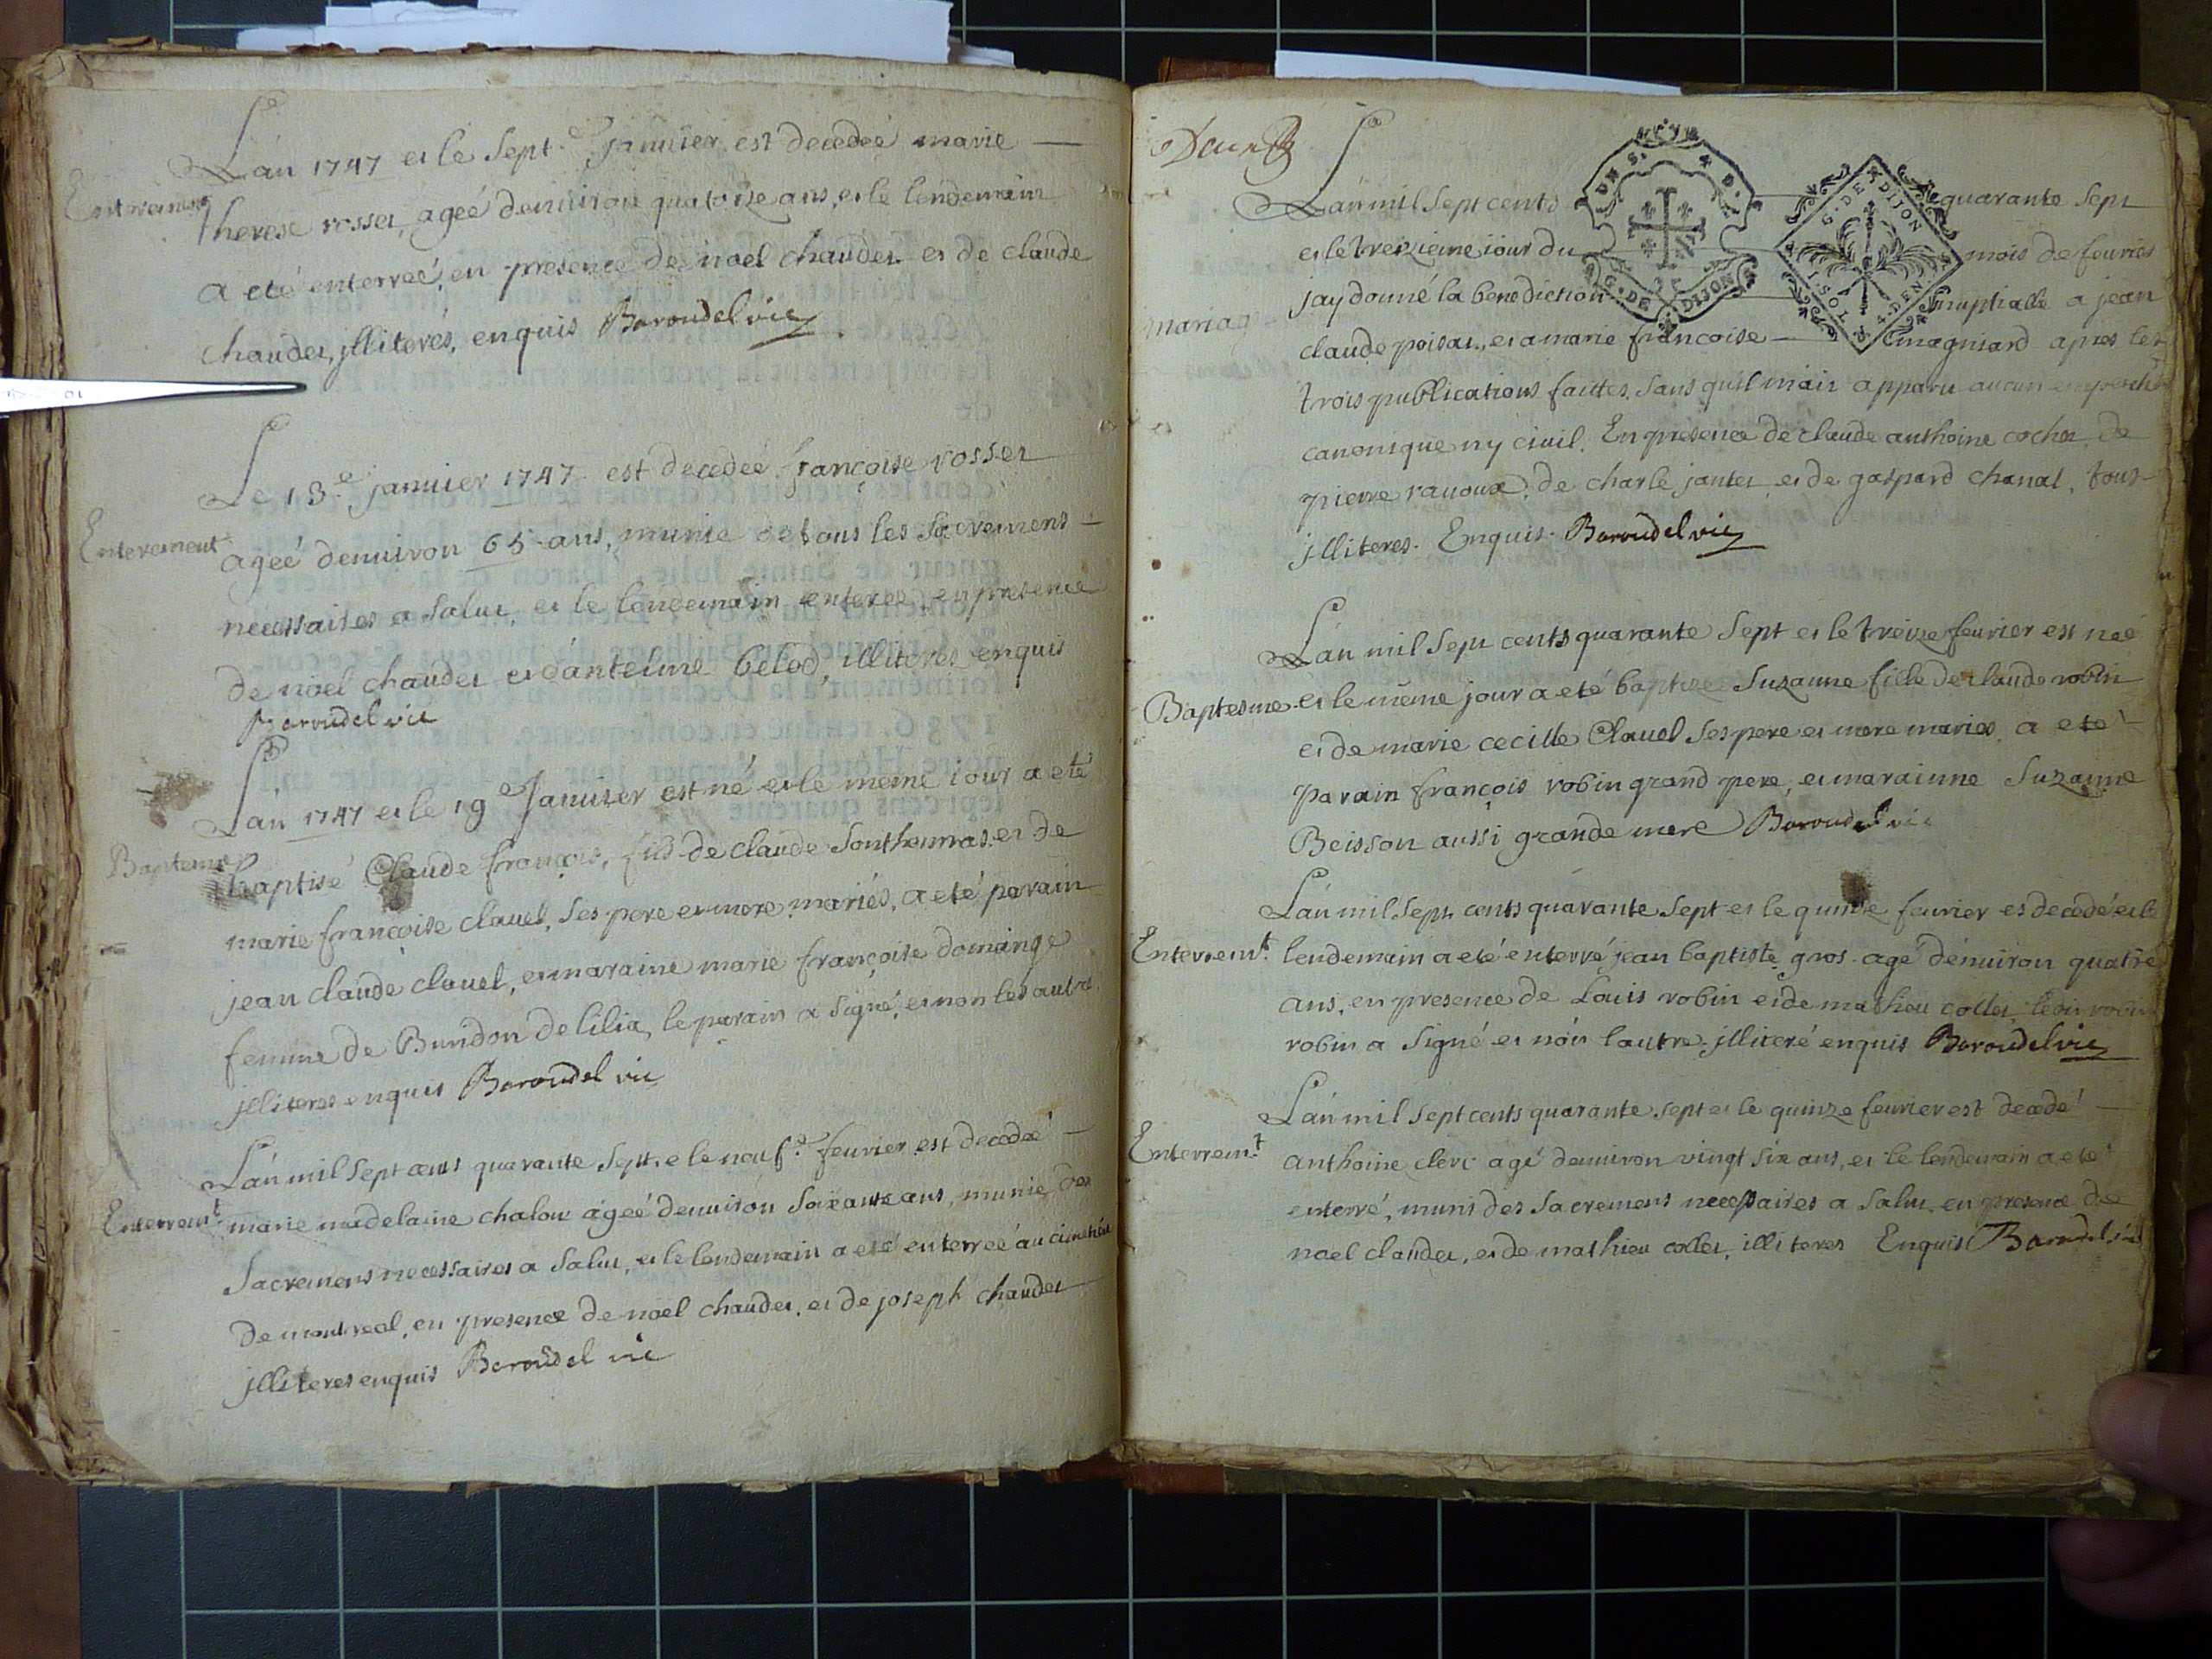 Lán 1747 et le Sept.e janvier est decedeé marie
Enterement
therese rosset, ageé denuiron quatorze ans, et le lendemain
a eté enterreé, en presence de noel chaudet et de claude
chaudet, jlliterés, enquis Baroudel vic
Le 13.e januier 1747 est decedeé françoise rosset
Enterement
ageé denuiron 65 ans, munie de tous les Sacremens
necessaires a Salut, et le lendemain enteree, en presence
de noel chaudet et dantelme belod, illiteres enquis
Baroudel vic
Lán 1747 et le 19 Januier est né et le meme iour a eté
Bapteme
baptisé Claude françois, fils de claude Sonthonnas et de
marie françoise clauel, Ses pere et mere mariés, a eté parain
jean claude clauel, et maraine marie françoise domange
femme de Buridon de lilia, le parain a Signé, et non les autres
jlliteres enquis Baroudel vic
Lán mil Sept cents quarante Sept e le neuf.e feurier est decedeé
Enterremt
marie madelaine chalou ageé denuiron Soixante ans, munie des
Sacremens necessaires a Salut, et le lendemain a eté enterreé áu cimetiére
de montreal, en presence de noel chaudet, et de joseph chaudet
jlliteres enquis Baroudel vic
Lán mil Sept cents quarante Sept
et le treizieme iour du mois de feurier
jay donné la benediction nuptialle a jean
mariage
claude poisat, et a marie francoise magniard apres les
trois publications faittes, Sans quil m'ait apparu aucun empeche
canonique ny ciuil. En presence de claude anthoine cochet, de
pierre rauoux, de charle jantet, et de gaspard chanal, tous
jlliteres. Enquis. Baroudel vic
G. DE DIJON
G. DE DIJON
Lán mil Sept cents quarante Sept et le treize feurier est neé
Baptesme
et le même jour a eté baptizeé Suzanne fille de claude robin
et de marie cecille Clauel Ses pere et mere mariés, a eté
parain françois robin grand pere, et marainne Suzanne
Beisson aussi grande mere Baroudel vic
Lán mil Sept cents quarante Sept et le quinze feurier es decedé et le
Enterremt
lendemain a eté enterré jean baptiste gros agé dénuiron quatre
ans, en presence de Louis robin et de mathieu collet, ledit robin
robin a Signé et nón lautre jlliteré enquis Baroudel vic
Lán mil Sept cents quarante Sept et le quinze feurier est decedé
Enterremt
anthoine clerc agé denuiron vingt Six ans, et le lendemain a eté
enterré, muni des Sacremens necessaires a Salut, en presence de
noel claudet, et de mathieu collet, illiteres Enquis Baroudel vic